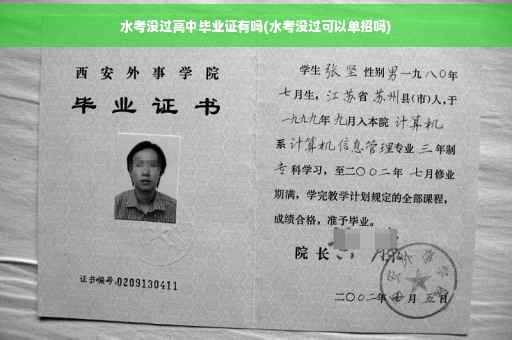 水考没过高中毕业证有吗(水考没过可以单招吗)
西安外事学院
毕业证书
证书编号:0209130411
学生 张坚 性别男 一九八〇年
七月生，江苏省苏州县(市)人，于
一九九九年九月入本院 计算机
系 计算机信息管理专业 三年制
专科学习，至二〇〇二年七月修业
期满，学完教学计划规定的全部课程，
成绩合格，准予毕业。
院长
二〇〇二年 月五日